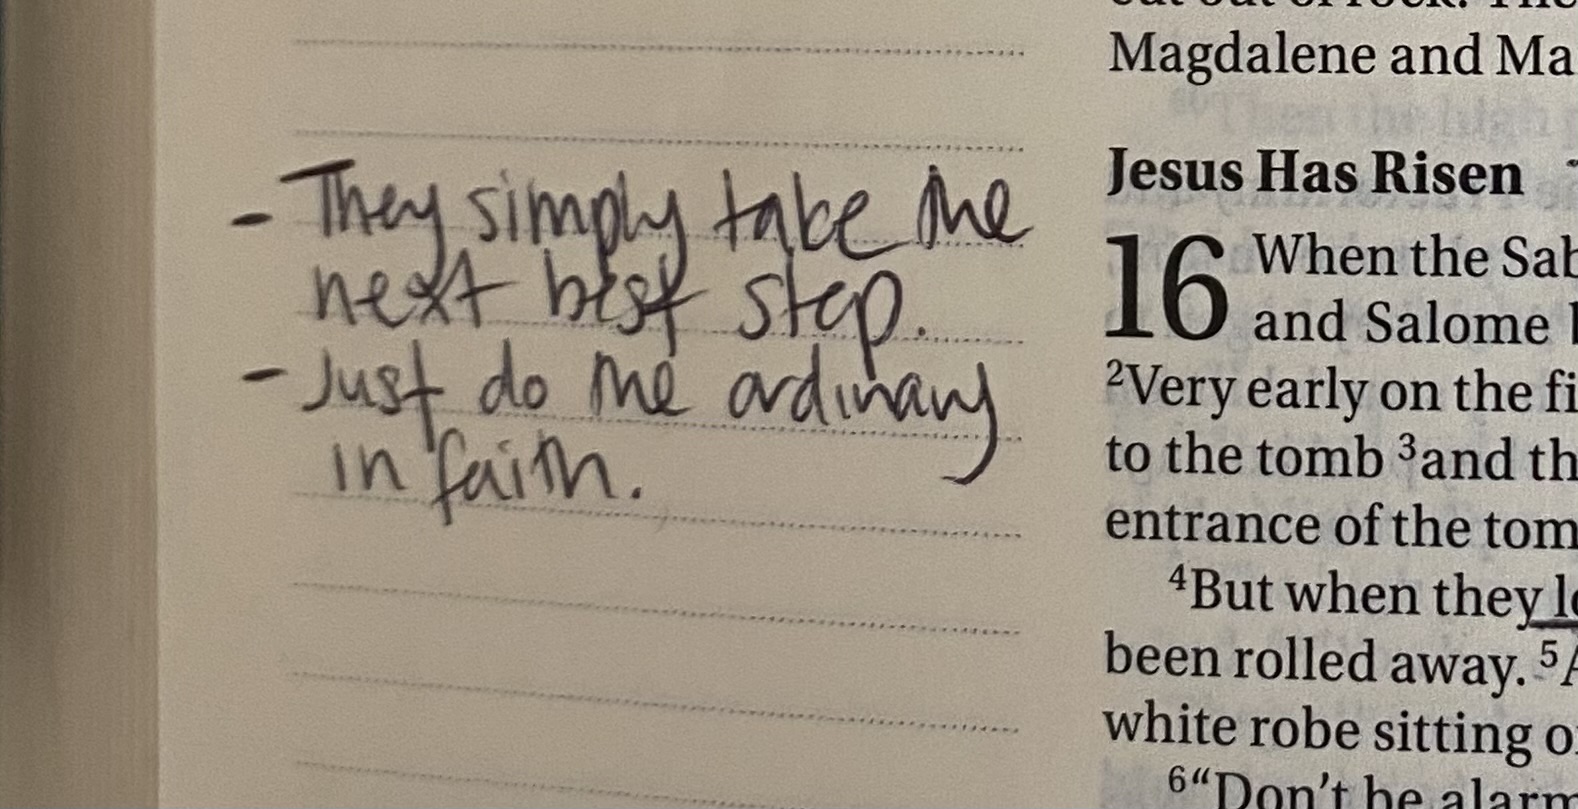 - They simply take the
next best step.
- Just do the ordinary
in faith.
Magdalene and Ma
Jesus Has Risen
16 When the Sab
and Salome
²Very early on the fi
to the tomb ³and th
entrance of the tom
⁴But when they lo
been rolled away. ⁵A
white robe sitting o
⁶“Don't be alarm